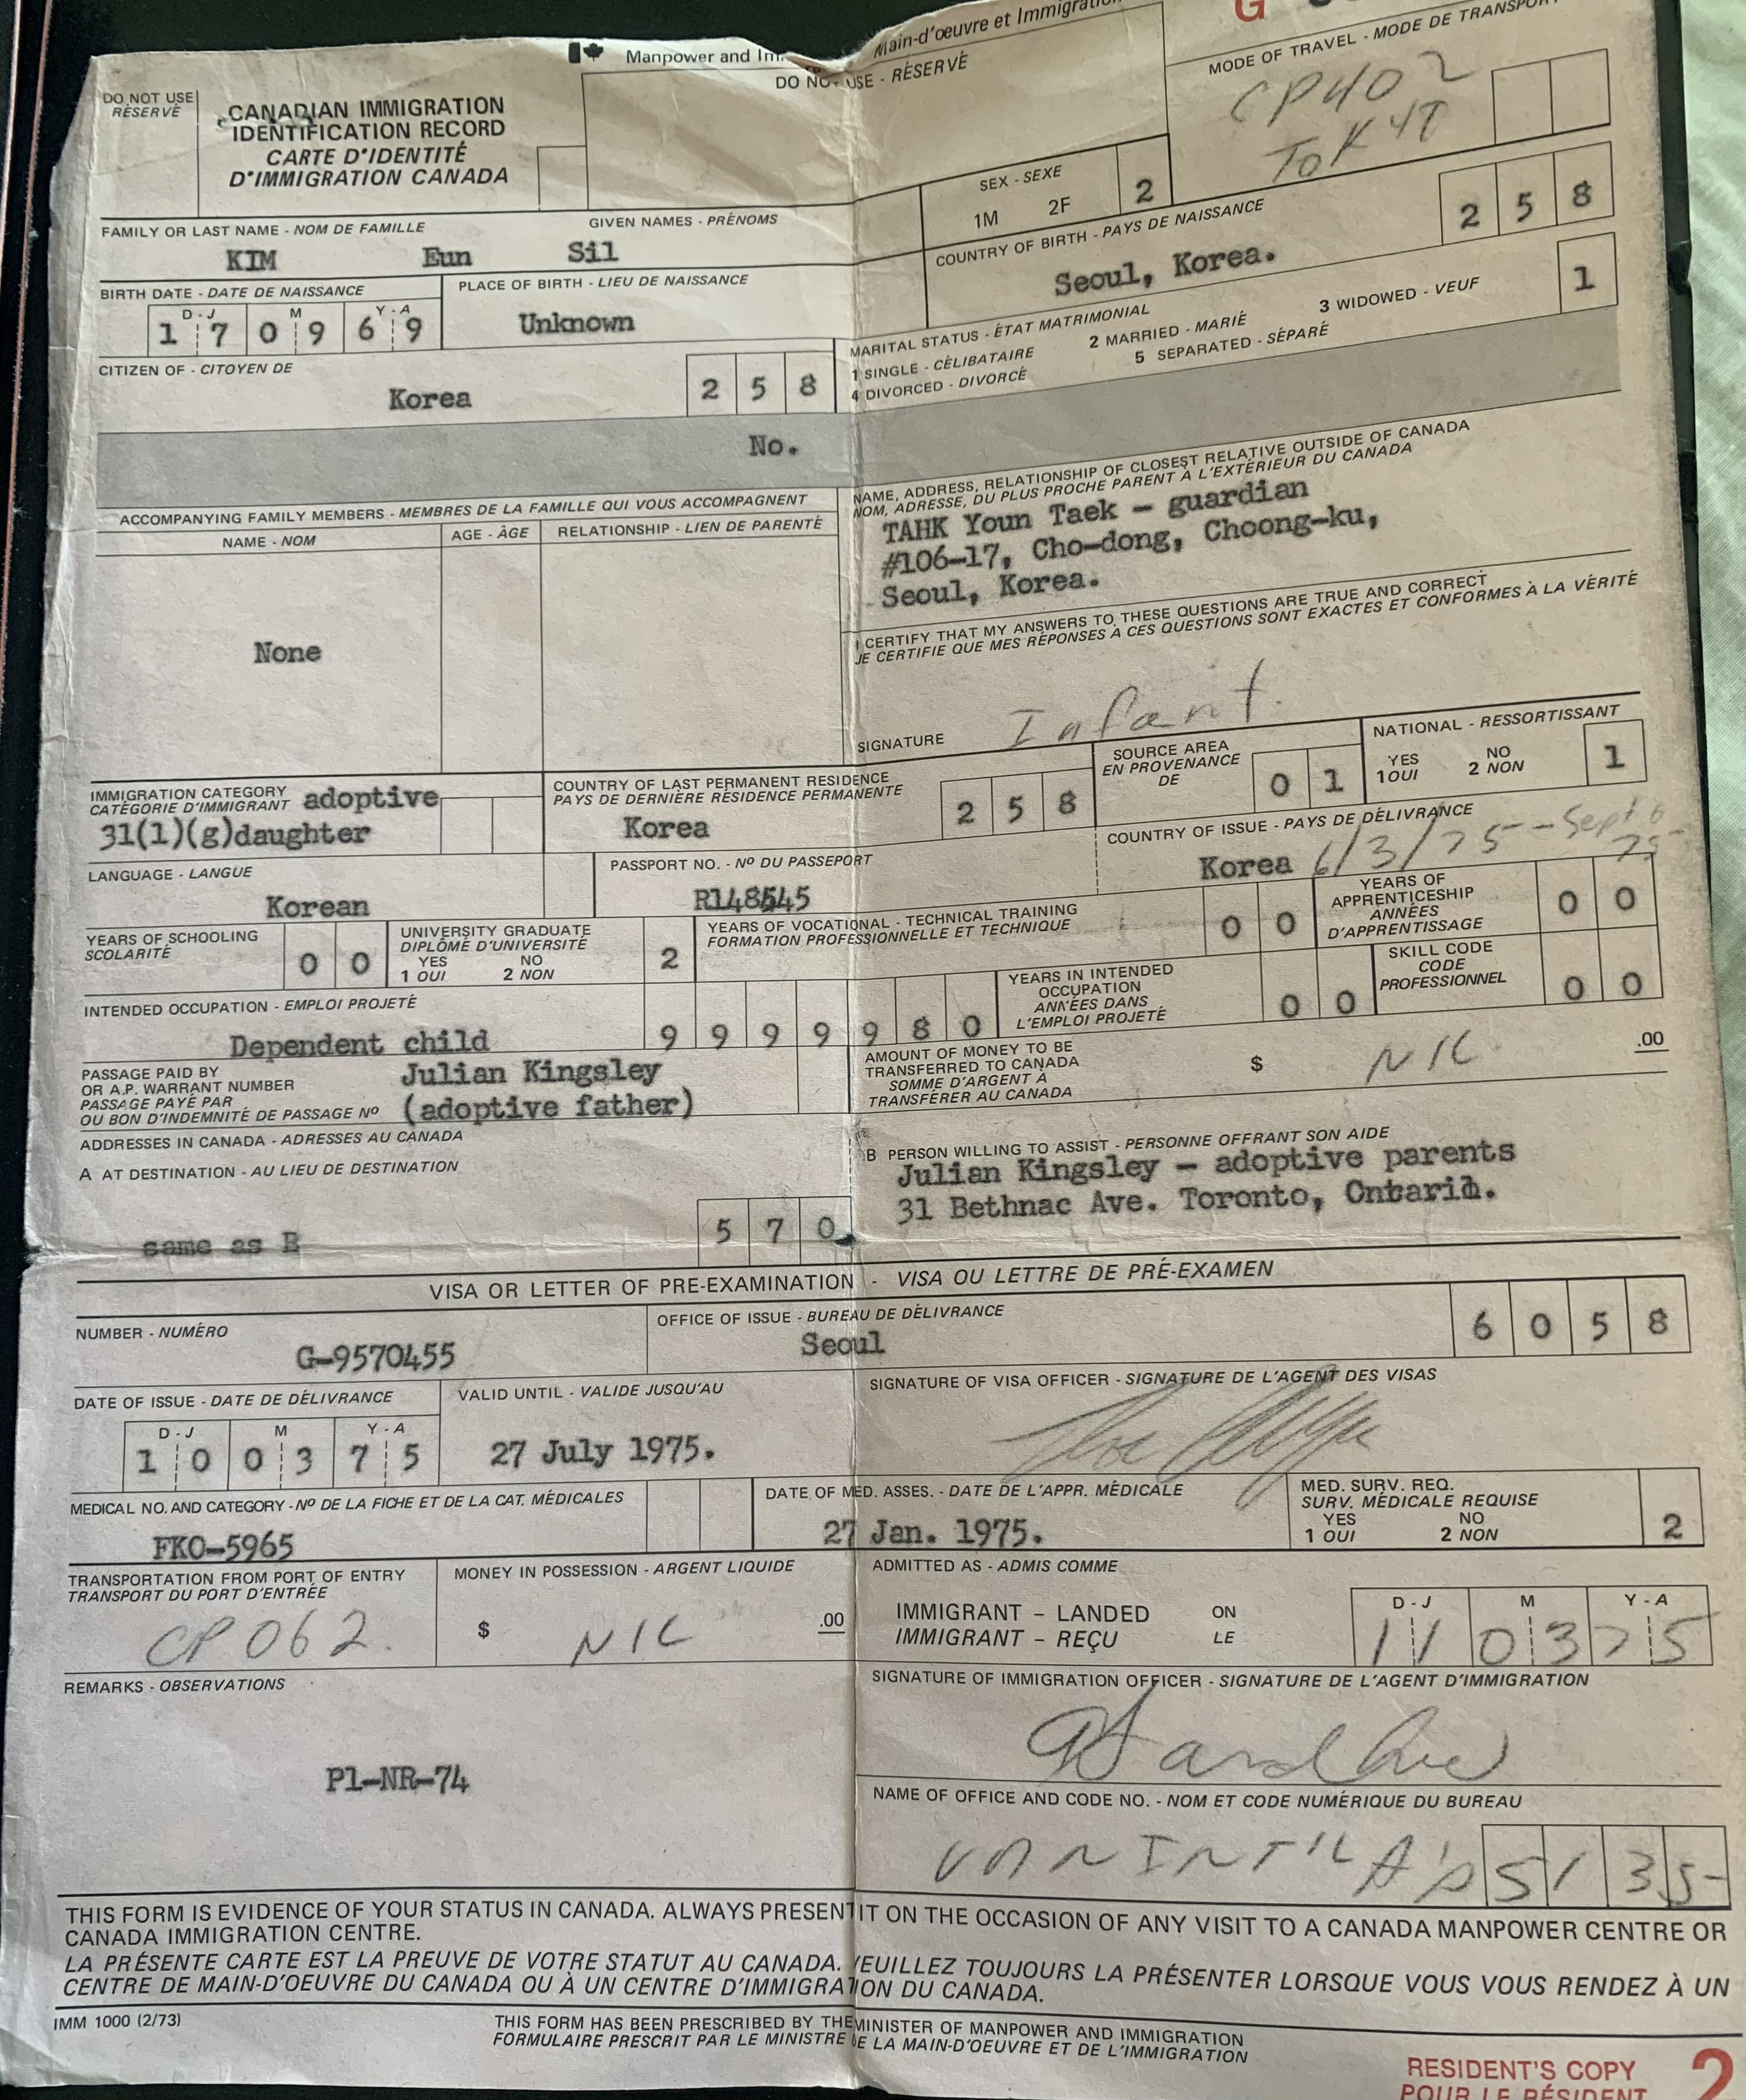 Manpower and Im
Main-d'oeuvre et Immigration
G
DO NOT USE
RÉSERVÉ
CANADIAN IMMIGRATION
IDENTIFICATION RECORD
CARTE D'IDENTITÉ
D'IMMIGRATION CANADA
DO NOT USE - RÉSERVÉ
MODE OF TRAVEL - MODE DE TRANSPORT
CP402
TOK YT
SEX - SEXE
1M 2F 2
FAMILY OR LAST NAME - NOM DE FAMILLE GIVEN NAMES - PRÉNOMS
KIM Eun Sil
COUNTRY OF BIRTH - PAYS DE NAISSANCE
Seoul, Korea. 2 5 8
BIRTH DATE - DATE DE NAISSANCE
D - J M Y - A
1 7 0 9 6 9
PLACE OF BIRTH - LIEU DE NAISSANCE
Unknown
MARITAL STATUS - ÉTAT MATRIMONIAL
1 SINGLE - CÉLIBATAIRE 2 MARRIED - MARIÉ 3 WIDOWED - VEUF
4 DIVORCED - DIVORCÉ 5 SEPARATED - SÉPARÉ
1
CITIZEN OF - CITOYEN DE
Korea 2 5 8
No.
ACCOMPANYING FAMILY MEMBERS - MEMBRES DE LA FAMILLE QUI VOUS ACCOMPAGNENT
NAME - NOM AGE - ÂGE RELATIONSHIP - LIEN DE PARENTÉ
None
NAME, ADDRESS, RELATIONSHIP OF CLOSEST RELATIVE OUTSIDE OF CANADA
NOM, ADRESSE, DU PLUS PROCHE PARENT À L'EXTÉRIEUR DU CANADA
TAHK Youn Taek - guardian
#106-17, Cho-dong, Choong-ku,
Seoul, Korea.
I CERTIFY THAT MY ANSWERS TO THESE QUESTIONS ARE TRUE AND CORRECT
JE CERTIFIE QUE MES RÉPONSES À CES QUESTIONS SONT EXACTES ET CONFORMES À LA VÉRITÉ
SIGNATURE Infant.
IMMIGRATION CATEGORY
CATÉGORIE D'IMMIGRANT adoptive
31(1)(g)daughter
COUNTRY OF LAST PERMANENT RESIDENCE
PAYS DE DERNIÈRE RÉSIDENCE PERMANENTE
Korea 2 5 8
SOURCE AREA
EN PROVENANCE
DE
0 1
NATIONAL - RESSORTISSANT
YES NO
1 OUI 2 NON
1
LANGUAGE - LANGUE
Korean
PASSPORT NO. - Nº DU PASSEPORT
R148545
COUNTRY OF ISSUE - PAYS DE DÉLIVRANCE
Korea 6/3/75 - Sept 6
75
YEARS OF SCHOOLING
SCOLARITÉ
0 0
UNIVERSITY GRADUATE
DIPLÔMÉ D'UNIVERSITÉ
YES NO
1 OUI 2 NON
2
YEARS OF VOCATIONAL - TECHNICAL TRAINING
FORMATION PROFESSIONNELLE ET TECHNIQUE
0 0
YEARS OF
APPRENTICESHIP
ANNÉES
D'APPRENTISSAGE
0 0
INTENDED OCCUPATION - EMPLOI PROJETÉ
Dependent child 9 9 9 9 9 8 0
YEARS IN INTENDED
OCCUPATION
ANNÉES DANS
L'EMPLOI PROJETÉ
0 0
SKILL CODE
CODE
PROFESSIONNEL
0 0
PASSAGE PAID BY
OR A.P. WARRANT NUMBER
PASSAGE PAYÉ PAR
OU BON D'INDEMNITÉ DE PASSAGE Nº
Julian Kingsley
(adoptive father)
AMOUNT OF MONEY TO BE
TRANSFERRED TO CANADA
SOMME D'ARGENT À
TRANSFÉRER AU CANADA
$ NIL .00
ADDRESSES IN CANADA - ADRESSES AU CANADA
A AT DESTINATION - AU LIEU DE DESTINATION
same as B 5 7 0
B PERSON WILLING TO ASSIST - PERSONNE OFFRANT SON AIDE
Julian Kingsley - adoptive parents
31 Bethnac Ave. Toronto, Ontario.
VISA OR LETTER OF PRE-EXAMINATION - VISA OU LETTRE DE PRÉ-EXAMEN
NUMBER - NUMÉRO
G-9570455
OFFICE OF ISSUE - BUREAU DE DÉLIVRANCE
Seoul 6 0 5 8
DATE OF ISSUE - DATE DE DÉLIVRANCE
D - J M Y - A
1 0 0 3 7 5
VALID UNTIL - VALIDE JUSQU'AU
27 July 1975.
SIGNATURE OF VISA OFFICER - SIGNATURE DE L'AGENT DES VISAS
MEDICAL NO. AND CATEGORY - Nº DE LA FICHE ET DE LA CAT. MÉDICALES
FKO-5965
DATE OF MED. ASSES. - DATE DE L'APPR. MÉDICALE
27 Jan. 1975.
MED. SURV. REQ.
SURV. MÉDICALE REQUISE
YES NO
1 OUI 2 NON
2
TRANSPORTATION FROM PORT OF ENTRY
TRANSPORT DU PORT D'ENTRÉE
CP 062.
MONEY IN POSSESSION - ARGENT LIQUIDE
$ NIL .00
ADMITTED AS - ADMIS COMME
IMMIGRANT - LANDED ON
IMMIGRANT - REÇU LE
D - J M Y - A
1 1 0 3 7 5
REMARKS - OBSERVATIONS
P1-NR-74
SIGNATURE OF IMMIGRATION OFFICER - SIGNATURE DE L'AGENT D'IMMIGRATION
NAME OF OFFICE AND CODE NO. - NOM ET CODE NUMÉRIQUE DU BUREAU
VAN INT'L A'P 5 1 3 5
THIS FORM IS EVIDENCE OF YOUR STATUS IN CANADA. ALWAYS PRESENT IT ON THE OCCASION OF ANY VISIT TO A CANADA MANPOWER CENTRE OR
CANADA IMMIGRATION CENTRE.
LA PRÉSENTE CARTE EST LA PREUVE DE VOTRE STATUT AU CANADA. VEUILLEZ TOUJOURS LA PRÉSENTER LORSQUE VOUS VOUS RENDEZ À UN
CENTRE DE MAIN-D'OEUVRE DU CANADA OU À UN CENTRE D'IMMIGRATION DU CANADA.
IMM 1000 (2/73)
THIS FORM HAS BEEN PRESCRIBED BY THE MINISTER OF MANPOWER AND IMMIGRATION
FORMULAIRE PRESCRIT PAR LE MINISTRE DE LA MAIN-D'OEUVRE ET DE L'IMMIGRATION
RESIDENT'S COPY 2
POUR LE RÉSIDENT